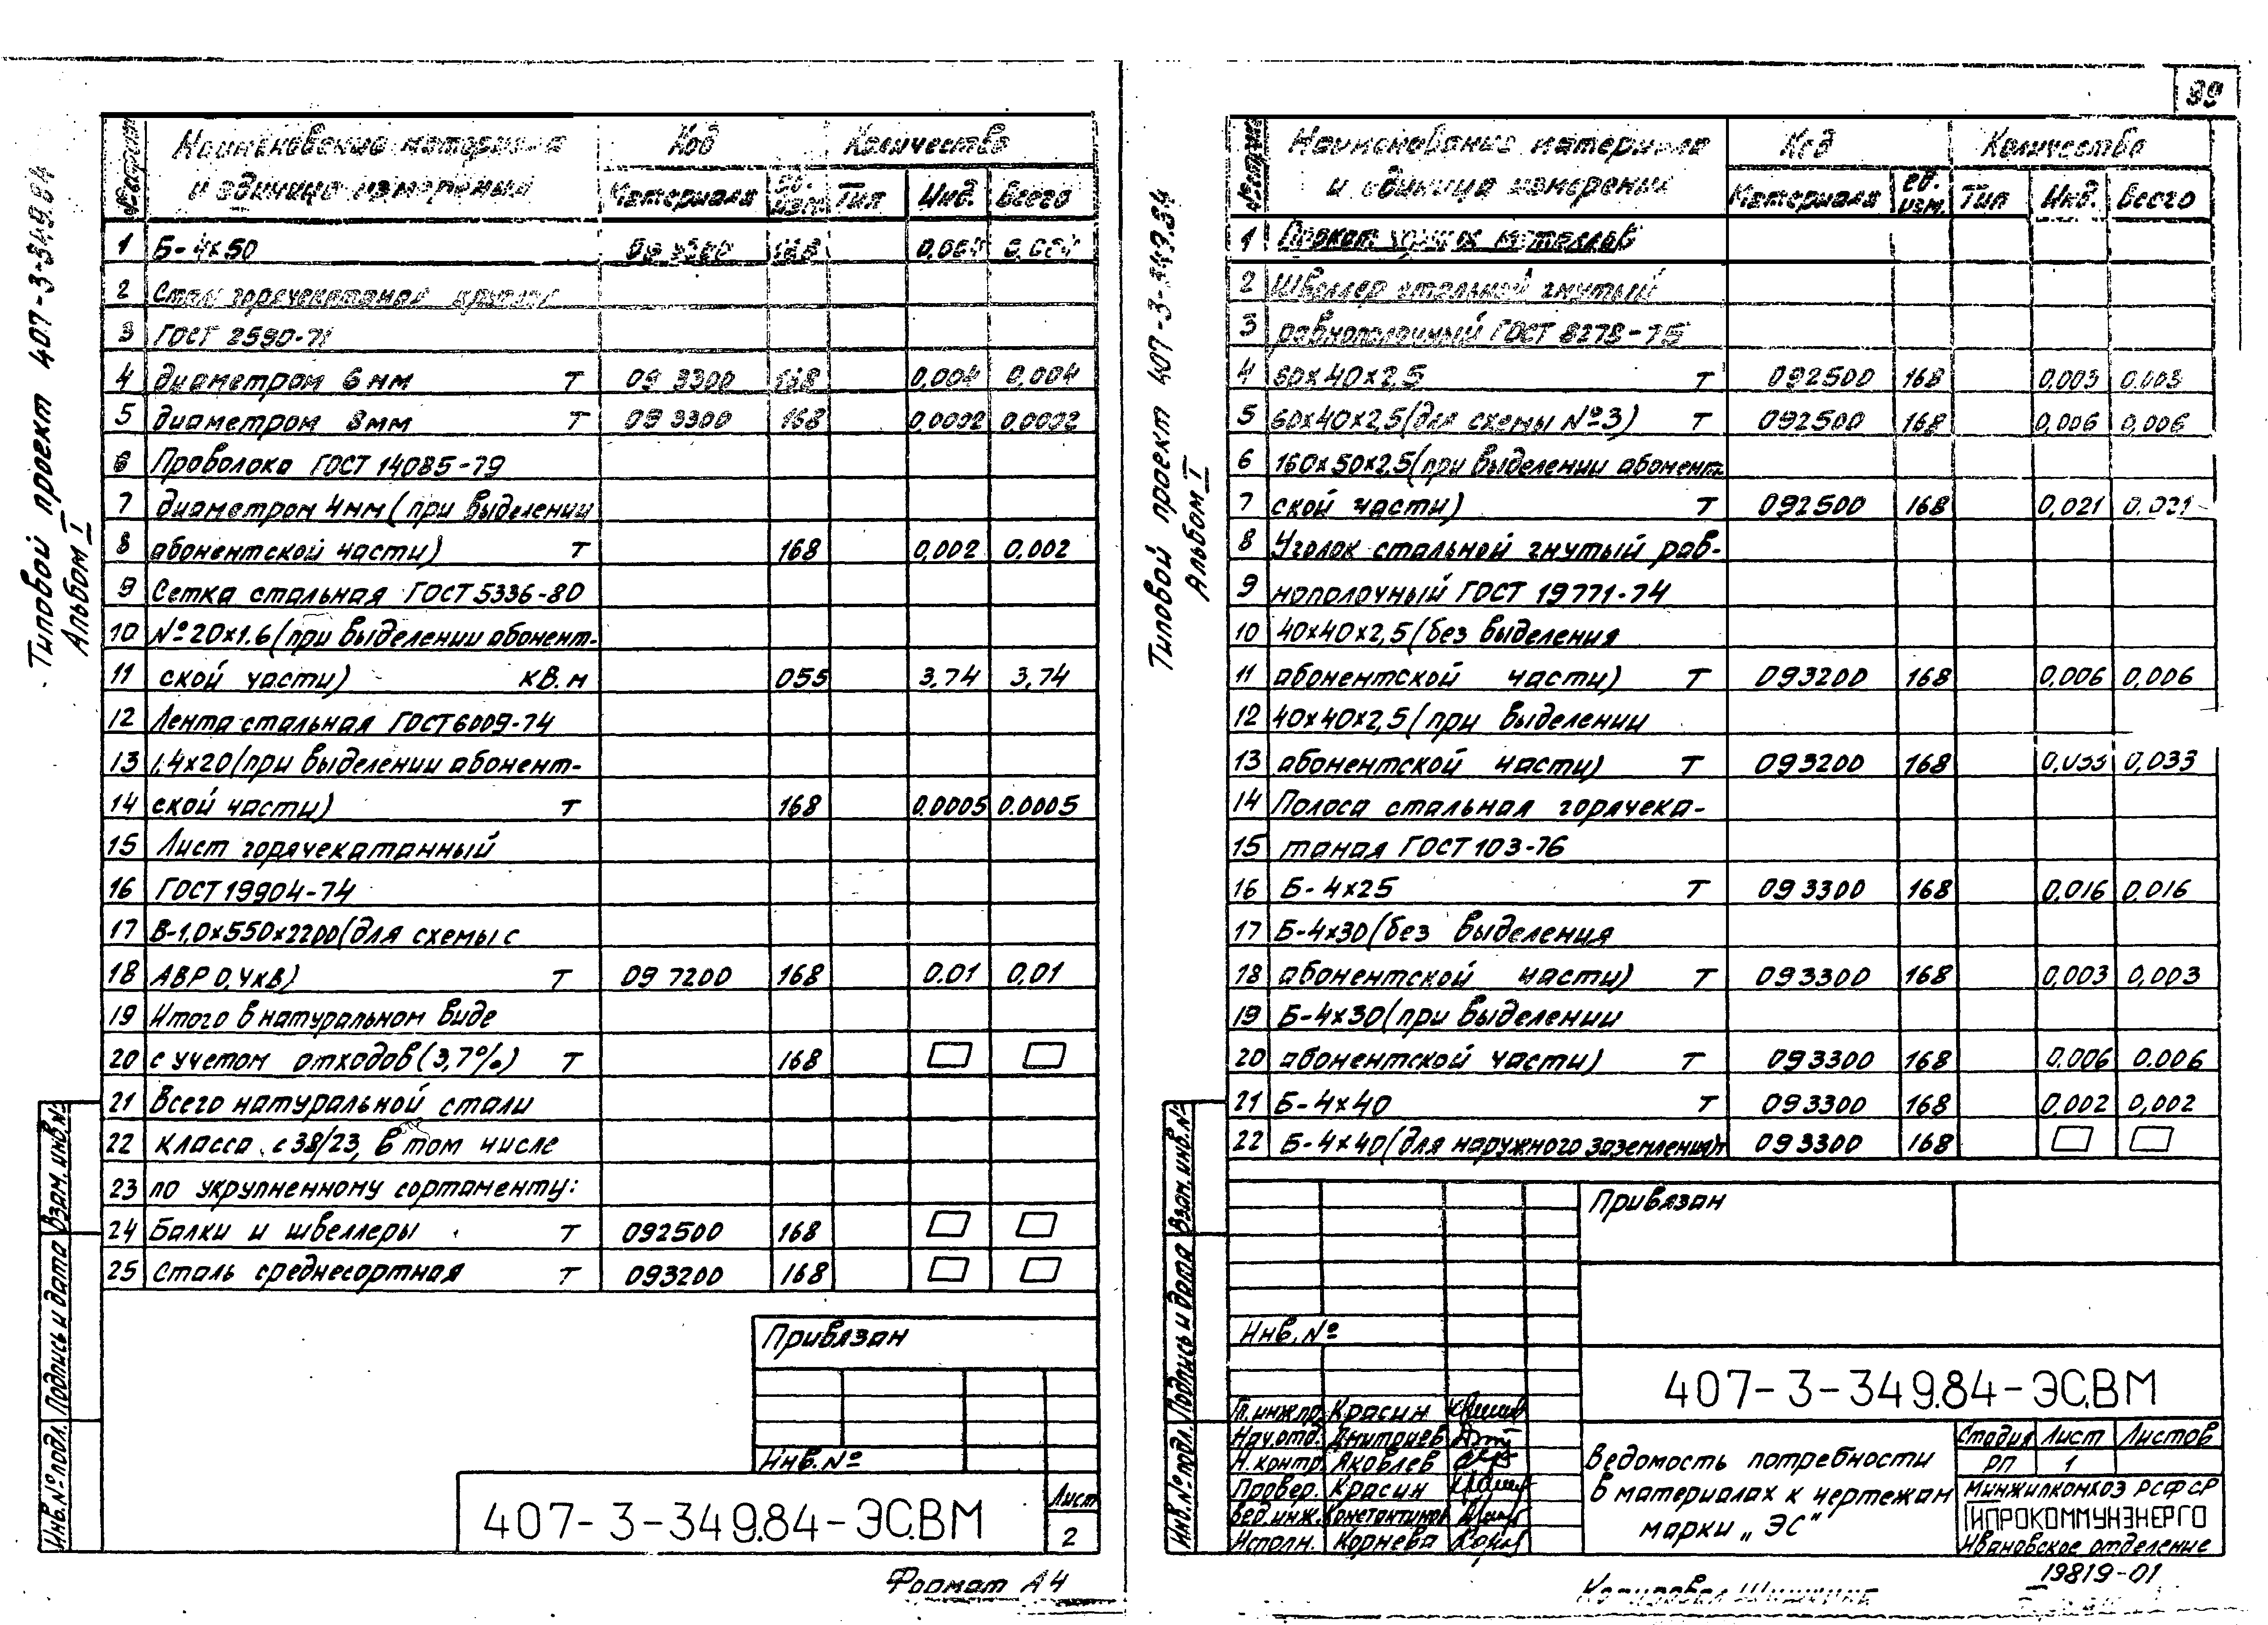 Типовой проект 407-3-349.84
Альбом I
№ строки
Наименование материала
и единица измерения
Код
Количество
Материала
ед. изм.
Тип
Инд.
Всего
1 Б-4х50 168
2 Сталь горячекатаная круглая
3 ГОСТ 2590-71
4 диаметром 6мм Т 093300 168 0,004 0.004
5 диаметром 8мм Т 093300 168 0,0002 0,0002
6 Проволока ГОСТ 14085-79
7 диаметром 4мм (при выделении
8 абонентской части) Т 168 0,002 0,002
9 Сетка стальная ГОСТ 5336-80
10 №20х1.6 (при выделении абонент-
11 ской части) кв.м 055 3,74 3,74
12 Лента стальная ГОСТ 6009-74
13 1,4х20 (при выделении абонент-
14 ской части) Т 168 0.0005 0.0005
15 Лист горячекатанный
16 ГОСТ 19904-74
17 В-1,0х550х2200 (для схемы с
18 АВР 0,4кВ) Т 097200 168 0.01 0,01
19 Итого в натуральном виде
20 с учетом отходов (3,7%) Т 168
21 Всего натуральной стали
22 класса с38/23, в том числе
23 по укрупненному сортаменту:
24 Балки и швеллеры Т 092500 168
25 Сталь среднесортная Т 093200 168
Привязан
Инв. №
407-3-349.84-ЭС.ВМ
Лист
2
Формат А4
Инв. № подл. Подпись и дата Взам. инв. №
99
Типовой проект 407-3-349.84
Альбом I
№ строки
Наименование материала
и единица измерения
Код
Количество
Материала
ед. изм.
Тип
Инд.
Всего
1 Прокат черных металлов
2 Швеллер стальной гнутый
3 равнополочный ГОСТ 8278-75
4 80х40х2,5 Т 092500 168 0,003 0.003
5 60х40х2,5 (для схемы №3) Т 092500 168 0,006 0,006
6 160х50х2,5 (при выделении абонент
7 ской части) Т 092500 168 0,021 0,021
8 Уголок стальной гнутый рав-
9 нополочный ГОСТ 19771-74
10 40х40х2,5 (без выделения
11 абонентской части) Т 093200 168 0,006 0,006
12 40х40х2,5 (при выделении
13 абонентской части) Т 093200 168 0,033 0,033
14 Полоса стальная горячека-
15 таная ГОСТ 103-76
16 Б-4х25 Т 093300 168 0,016 0.016
17 Б-4х30 (без выделения
18 абонентской части) Т 093300 168 0,003 0,003
19 Б-4х30 (при выделении
20 абонентской части) Т 093300 168 0.006 0.006
21 Б-4х40 Т 093300 168 0,002 0,002
22 Б-4х40 (для наружного заземления) т 093300 168
Привязан
Инв. №
407-3-349.84-ЭС.ВМ
Гл. инж. пр. Красин
Нач. отд. Дмитриев
Н. контр. Яковлев
Провер. Красин
Вед. инж. Константинов
Исполн. Корнева
Ведомость потребности
в материалах к чертежам
марки „ЭС"
Стадия Лист Листов
РП 1
Минжилкомхоз РСФСР
ГИПРОКОММУНЭНЕРГО
Ивановское отделение
Инв. № подл. Подпись и дата Взам. инв. №
19819-01
Копировал